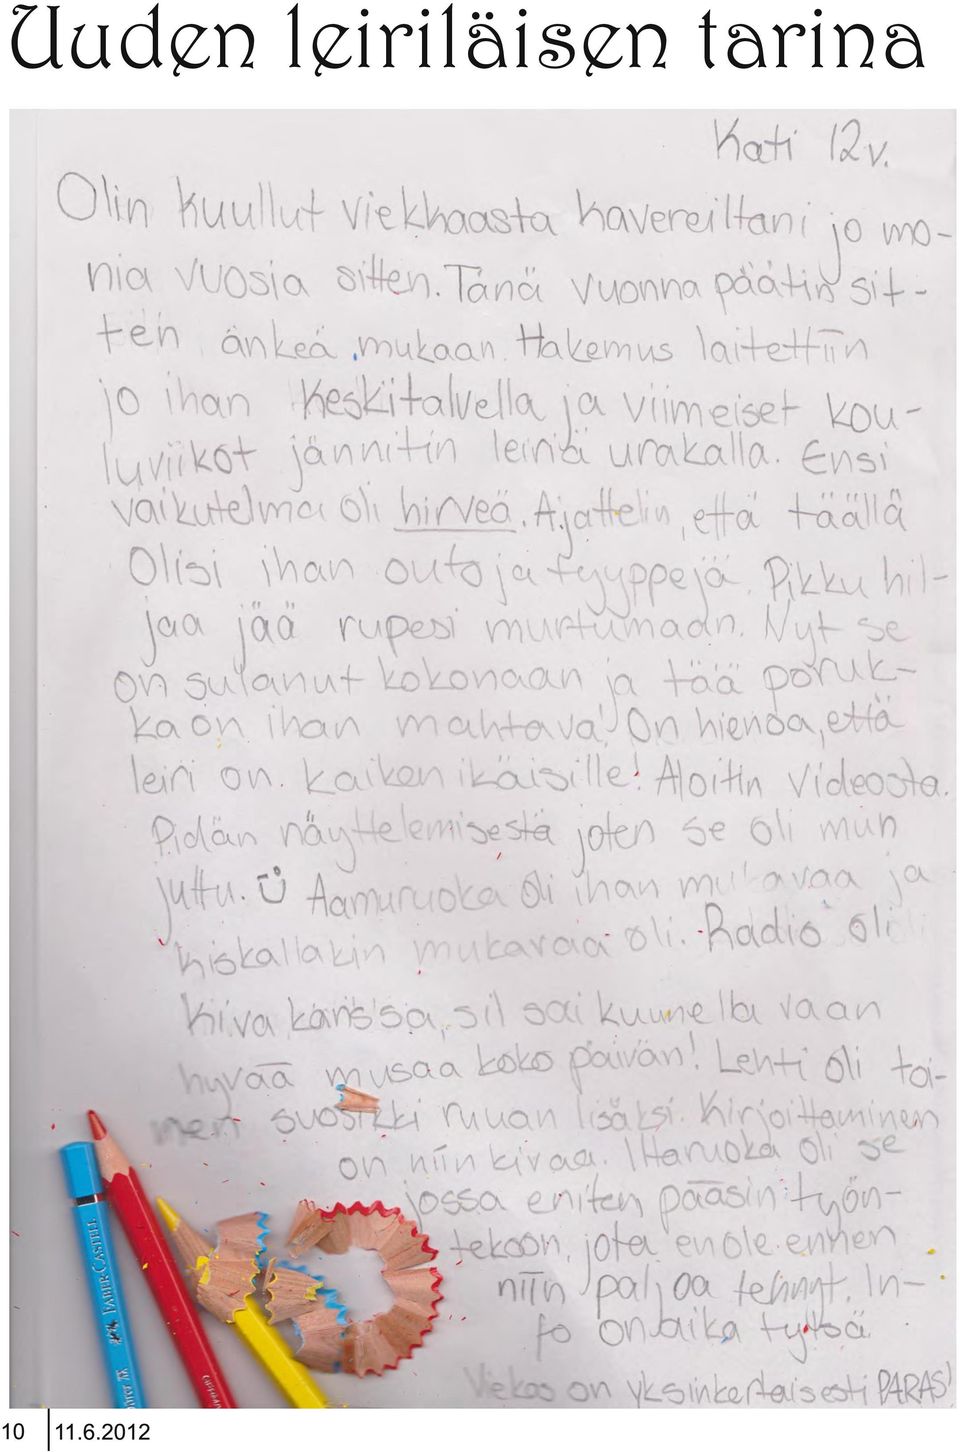 Uuden leiriläisen tarina
Kati 12v.
Olin kuullut viekkaasta kavereiltani jo mo-
nia vuosia sitten. Tänä vuonna päätin sit-
ten änkeä mukaan. Hakemus laitettiin
jo ihan keskitalvella ja viimeiset kou-
luviikot jännitin leiriä urakalla. Ensi
vaikutelma oli hirveä. Ajattelin, että täällä
Olisi ihan outoja tyyppejä. Pikku hil-
jaa jää rupesi murtumaan. Nyt se
on sulanut kokonaan ja tää poruk-
ka on ihan mahtava! On hienoa, että
leiri on kaiken ikäisille! Aloitin Videosta.
Pidän näyttelemisestä joten se oli mun
juttu. Ü Aamuruoka oli ihan mukavaa ja
kiskallakin mukavaa oli. Radio oli
kiva kans sa, sil sai kuunnella vaan
hyvää musaa koko päivän! Lehti oli toi-
nen suosikki ruuan lisäksi. Kirjoittaminen
on niin kivaa. Iltaruoka oli se
jossa eniten pääsin työn-
tekoon, jota en ole ennen
niin paljoa tehnyt. In-
fo on aika tylsä.
Viekas on yksinkertaisesti PARAS!
FABER-CASTELL
10 11.6.2012